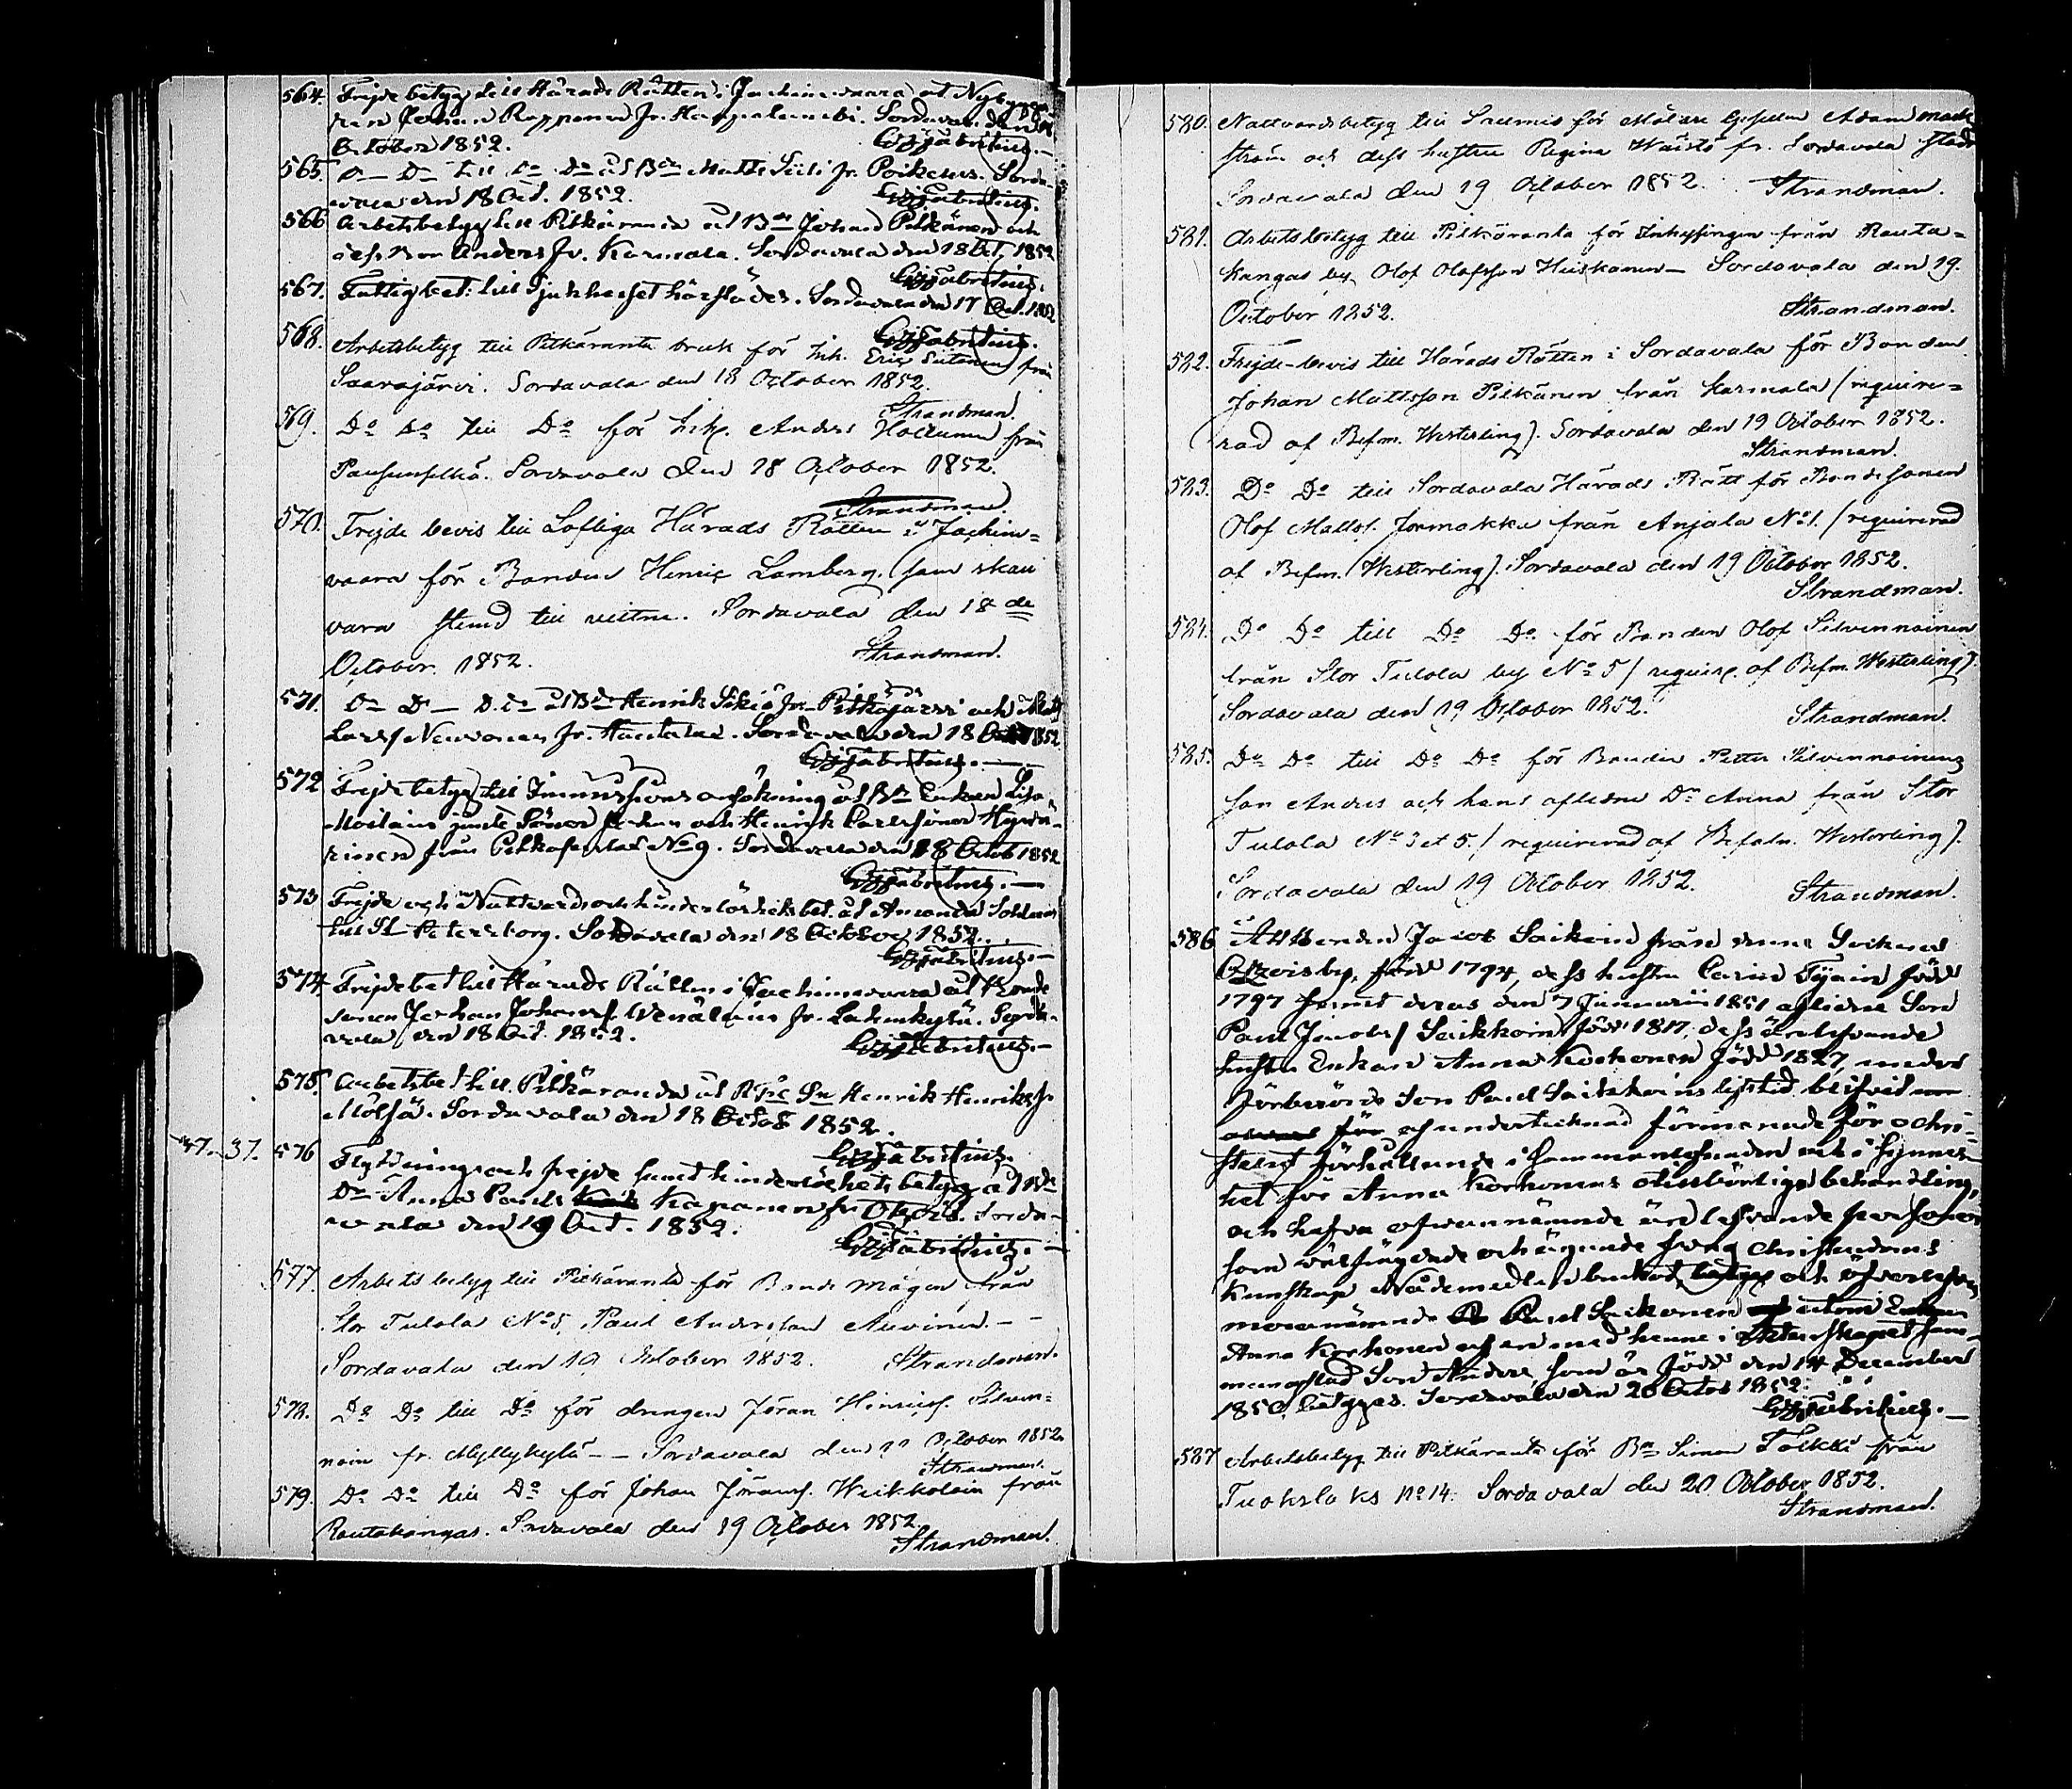 564. Frejdebetyg till Härads Rätten i Jachimvaara åt Nybygga-
ren Johan Repponen fr. Haapalambi. Sordavala den 18
October 1852. GJFabritius.
565. D° D° till D° D° åt B Matts fr. Poikens. Sorda-
vala den 18 Oct. 1852. GJFabritius.
566 Arbetsbetyg till Pitkäranda åt B Johan Pitkänen och
dess Bror Anders fr. Karmala. Sordavala den 18 Oct. 1852
GJFabritius.
567. Fattigbet: till Sjukhuset härstädes. Sordavala den 17 Oct. 1852
GJFabritius.
568. Arbetsbetyg till Pitkäranta bruk för Inh. Eric från
Saarajärvi. Sordavala den 18 October 1852.
Strandman.
569. D° D° till D° för Inh. Anders från
Sordavala den 18 October 1852.
Strandman.
570. Frejde bevis till Lofliga Härads Rätten i Jachim=
vaara för Bonden Henric Lamberg, som skall
vara stemd till vittne. Sordavala den 18 de
October 1852. Strandman.
571. D° D° D° D° åt B Henrik Sikiö fr. Pitkäjärvi och Matts
Larss. Neuvonen fr. Hautala. Sordavala den 18 Oct 1852
GJFabritius.
572 Frejdebetyg till Immissions ansökning åt Enkan Lisa
Moilain jemte Söner Johan och Henrik
från No 9. Sordavala den 18 Octob 1852
GJFabritius.
573 Frejde och Nattvards och hinderlöshetsbet. åt Amanda
till St Petersborg. Sordavala den 18 October 1852.
GJFabritius.
574 Frejdebet till Härads Rätten i Jachimvaara åt Bonde
sonen Johan Johanss. Venäläin fr. Lahenkylä. Sorda-
vala den 18 Oct. 1852. GJFabritius.
575. Arbetsbet till Pitkäranda åt Henrik Henrikss.
Mölsä. Sordavala den 18 Octob 1852.
GJFabritius.
47. 37. 576 Flyttnings och frejde samt hinderlöshets betyg åt
D Anna Pauls Kaponen fr. Sorda-
vala den 19 Oct. 1852.
GJFabritius.
577. Arbetsbetyg till Pitkäranta för Bonde mågen från
Stor Tulola No 5, Paul Andersson Auvinen.
Sordavala den 19 October 1852. Strandman.
578. D° D° till D° för drengen Jöran Henricss. Silven-
noin fr. Myllykylä — Sordavala den 19 October 1852.
Strandman.
579. D° D° till D° för Johan Jöranss. Weikkolain från
Rautakangas. Sordavala den 19 October 1852.
Strandman.
580. Nattvardsbetyg till Salmis för Målare Gesellen Adam
ström och dess hustru Regina Waistö fr. Sordavala stad
Sordavala den 19 October 1852. Strandman.
581. Arbetsbetyg till Pitkäranta för Inhysingen från Rauta=
kangas by Olof Olofsson Hiiskanen — Sordavala den 19.
October 1852. Strandman.
582. Frejde-bevis till Härads Rätten i Sordavala för Bonden
Johan Mattsson Pitkänen från Karmala (require=
rad af Befm. Westerling). Sordavala den 19 October 1852.
Strandman.
583. D° D° till Sordavala Härads Rätt för Bondesonen
Olof Mattss. Jormakka från Anjala No 1. (requirerad
af Befm. Westerling). Sordavala den 19 October 1852.
Strandman.
584. D° D° till D° D° för Bonden Olof Silvennoinen
från Stor Tulola by No 5 (requir. af Befm. Westerling).
Sordavala den 19 October 1852. Strandman.
585. D° D° till D° D° för Bonden Petter Silvennoinens
son Anders och hans aflidne D. Anna från Stor
Tulola No 3 et 5. (requirerad af Befalm. Westerling).
Sordavala den 19 October 1852. Strandman.
586 Att Bonden Jacob Saikoin från denne Sockens
by, född 1794, dess hustru Carin Tyäin född
1797 samt deras den 7 Januarii 1851 aflidne Son
Paul Jacobs. Saikkoin, född 1817, dess ännu lefvande
hustru Enkan Anna Korhonen född 1827, medan
förberörde Son Paul Saikkoins lifstid blifvit
för af undertecknad förmanade för ochri=
steligt förhållande i sammanlefnaden och i synner-
het för Anna Korhonens otillbörliga behandling,
och hafva ofvannämnde än lefvande personer
som välfrejdade och ägande svag Christendoms
kunskap Nådemedlen brukat, och
morenämnde Paul Saikonen utom Enkan
Anna Korhonen efter en med henne i äktenskapet sam-
manaflad Son Anders, som är född den 14 December
1850, betygas. Sordavala den 20 Octob 1852.
GJFabritius.
587 Arbetsbetyg till Pitkäranta för Bn Simon Tolkki från
Tuokslaks No 14. Sordavala den 20 October 1852.
Strandman.